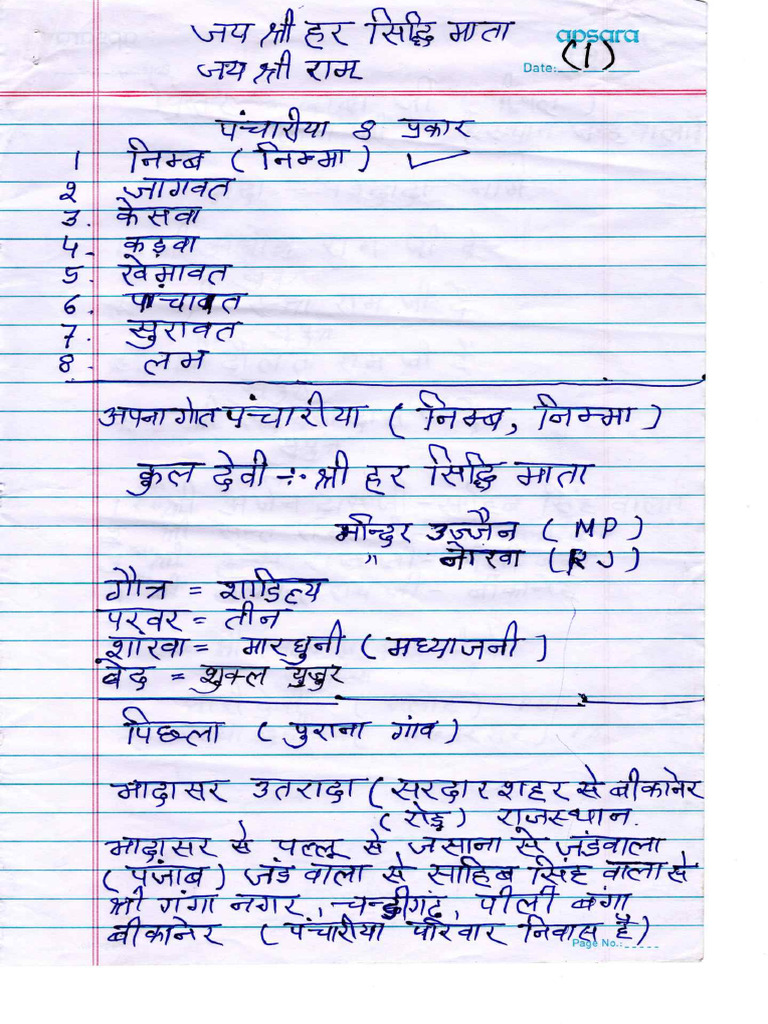 जय श्री हर सिद्धि माता
apsara
जय श्री राम
Date: (1)
पंचारीया 8 प्रकार
1 निम्ब (निम्मा) ✓
2 जागवत
3. केसवा
4- कड़वा
5. खेमावत
6. पांचावत
7. सुरावत
8- लभ
अपना गोत पंचारीया (निम्ब, निम्मा)
कुल देवी ÷ श्री हर सिद्धि माता
मन्दिर उज्जैन (MP)
" नोखा (RJ)
गौत्र = शाडिल्य
परवर = तीन
शाखा = मारधुनी (मध्याजनी)
वेद = शुक्ल युजुर
पिछला (पुराना गांव)
मादासर उतरादा (सरदार शहर से बीकानेर
(रोड़) राजस्थान.
मादासर से पल्लू से जसाना से जंडवाला
(पंजाब) जंड वाला से साहिब सिंह वाला से
श्री गंगा नगर, चन्डीगढ़, पीली बंगा
बीकानेर (पंचारीया परिवार निवास है)
Page No.: